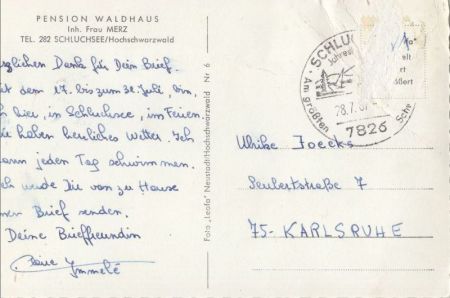 PENSION WALDHAUS
Inh. Frau MERZ
TEL. 282 SCHLUCHSEE/Hochschwarzwald
rzlichen Dank für Dein Brief.
it dem 17. bis zum 31. Juli, bin,
h hier, in Schluchsee, im Ferien
ie haben herrliches Wetter. Ich
ann jeden Tag schwimmen.
ch werde Dir von zu Hause
nen Brief senden.
Deine Brieffreundin
Foto „Leofa" Neustadt/Hochschwarzwald Nr 6
SCHLUC
Am größten
Schw
28.7.
7826
elt
rt
ßert
Ulrike Joecks
Seubertstraße 7
75- KARLSRUHE